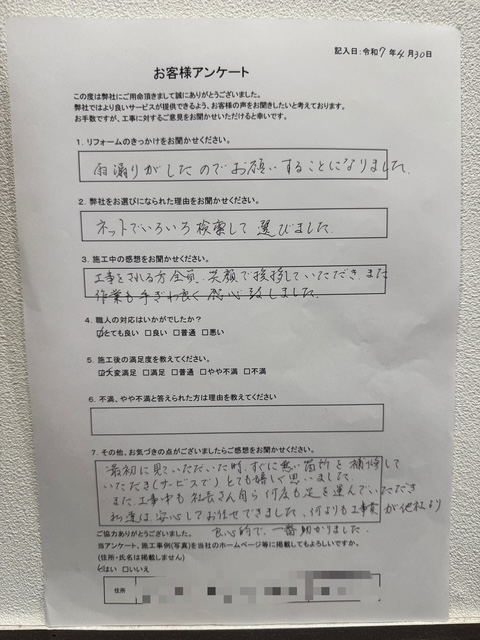 記入日:令和7年4月30日
お客様アンケート
この度は弊社にご用命頂きまして誠にありがとうございました。
弊社ではより良いサービスが提供できるよう、お客様の声をお聞きしたいと考えております。
お手数ですが、工事に対するご意見をお聞かせいただけると幸いです。
1. リフォームのきっかけをお聞かせください。
雨漏りがしたのでお願いすることになりました。
2. 弊社をお選びになられた理由をお聞かせください。
ネットでいろいろ検索して選びました。
3. 施工中の感想をお聞かせください。
工事をされる方全員、笑顔で挨拶していただき、また
作業も手ぎわ良く感心致しました。
4. 職人の対応はいかがでしたか?
☑とても良い □良い □普通 □悪い
5. 施工後の満足度を教えてください。
☑大変満足 □満足 □普通 □やや不満 □不満
6. 不満、やや不満と答えられた方は理由を教えてください
7. その他、お気づきの点がございましたらご感想をお聞かせください。
最初に見ていただいた時、すぐに悪い箇所を補修して
いただき(サービスで)とても嬉しく思いました。
また工事中も社長さん自ら何度も足を運んでいただき
私達は安心してお任せできました。何よりも工事費が他社より
良心的で、一番助かりました。
ご協力ありがとうございました。
当アンケート、施工事例(写真)を当社のホームページ等に掲載してもよろしいですか。
(住所・氏名は掲載しません)
☑はい □いいえ
住所